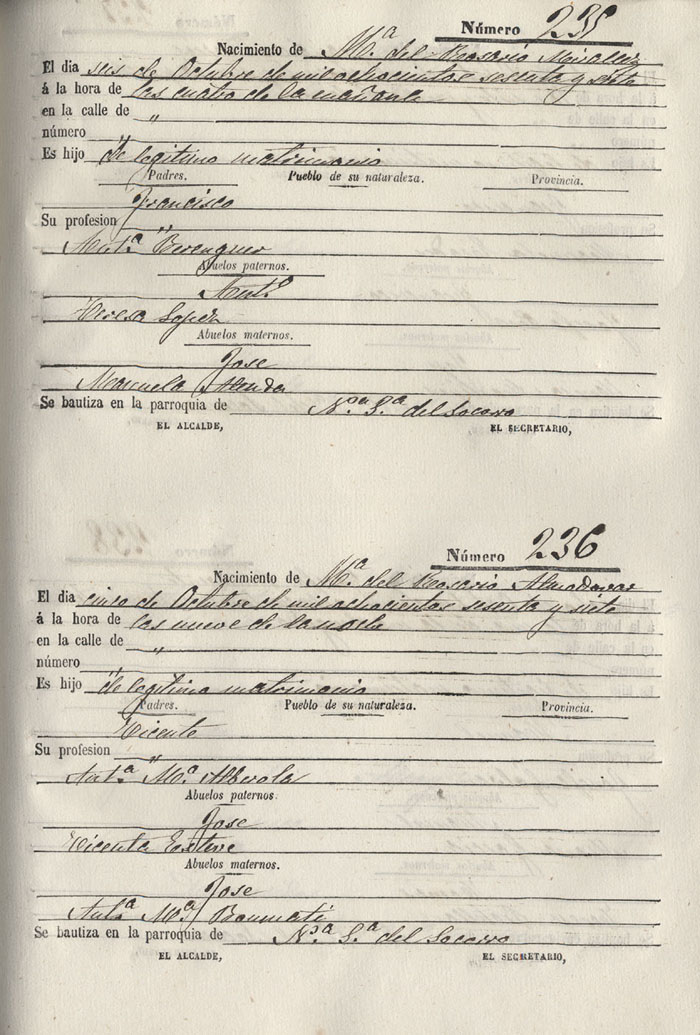 Número 235
Nacimiento de Mª del Rosario Miralles
El dia seis de Octubre de mil ochocientos sesenta y siete
á la hora de las cuatro de la mañana
en la calle de "
número "
Es hijo de legitimo matrimonio
Padres. Pueblo de su naturaleza. Provincia.
Francisco
Su profesion "
Antª Berenguer
Abuelos paternos.
Antº
Teresa
Abuelos maternos.
Jose
Manuela
Se bautiza en la parroquia de Nª Sª del Socorro
EL ALCALDE, EL SECRETARIO,
Número 236
Nacimiento de Mª del Rosario
El dia cinco de Octubre de mil ochocientos sesenta y siete
á la hora de las nueve de la noche
en la calle de "
número "
Es hijo de legitimo matrimonio
Padres. Pueblo de su naturaleza. Provincia.
Vicente
Su profesion "
Antª Mª Alberola
Abuelos paternos.
Jose
Vicenta Esteve
Abuelos maternos.
Jose
Antª Mª
Se bautiza en la parroquia de Nª Sª del Socorro
EL ALCALDE, EL SECRETARIO,